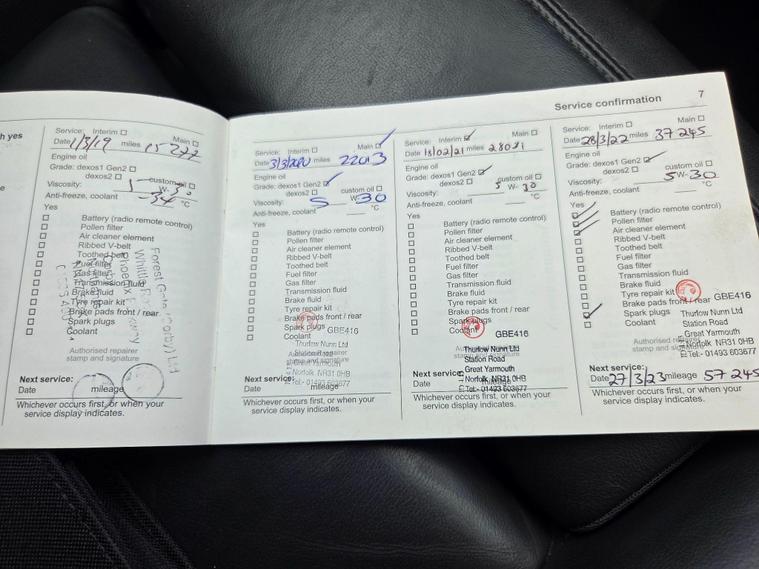 h yes
e
Service: Interim ☐ Main ☐
Date 1/3/19 miles
Engine oil
Grade: dexos1 Gen2 ☐
dexos2 ☐ custom oil ☐
Viscosity: W-
Anti-freeze, coolant -34 °C
Yes
☐ Battery (radio remote control)
☐ Pollen filter
☐ Air cleaner element
☐ Ribbed V-belt
☐ Toothed belt
☐ Fuel filter
☐ Gas filter
☐ Transmission fluid
☐ Brake fluid
☐ Tyre repair kit
☐ Brake pads front / rear
☐ Spark plugs
☐ Coolant
Authorised repairer
stamp and signature
Next service:
Date mileage
Whichever occurs first, or when your
service display indicates.
Service: Interim ☐ Main ☐ ✓
Date 3/3/2020 miles 22013
Engine oil
Grade: dexos1 Gen2 ☐ ✓
dexos2 ☐ custom oil ☐
Viscosity: 5 W- 30
Anti-freeze, coolant °C
Yes
☐ Battery (radio remote control)
☐ Pollen filter
☐ Air cleaner element
☐ Ribbed V-belt
☐ Toothed belt
☐ Fuel filter
☐ Gas filter
☐ Transmission fluid
☐ Brake fluid
☐ Tyre repair kit
☐ Brake pads front / rear
☐ Spark plugs
☐ Coolant GBE416
Thurlow Nunn Ltd
Authorised repairer
stamp and signature
Norfolk NR31 0HB
Tel:- 01493 603677
Next service:
Date mileage
Whichever occurs first, or when your
service display indicates.
Service confirmation 7
Service: Interim ☐ ✓ Main ☐
Date 15/02/21 miles
Engine oil
Grade: dexos1 Gen2 ☐ ✓
dexos2 ☐ custom oil ☐
Viscosity: 5 W- 30
Anti-freeze, coolant °C
Yes
☐ Battery (radio remote control)
☐ Pollen filter
☐ Air cleaner element
☐ Ribbed V-belt
☐ Toothed belt
☐ Fuel filter
☐ Gas filter
☐ Transmission fluid
☐ Brake fluid
☐ Tyre repair kit
☐ Brake pads front / rear
☐ Spark plugs
☐ Coolant GBE416
Thurlow Nunn Ltd
Station Road
Great Yarmouth
Norfolk NR31 0HB
Tel:- 01493 603677
Next service:
Date
Whichever occurs first, or when your
service display indicates.
Service: Interim ☐ Main ☐
Date 28/3/22 miles 37245
Engine oil
Grade: dexos1 Gen2 ☐ ✓
dexos2 ☐ custom oil ☐
Viscosity: 5 W- 30
Anti-freeze, coolant °C
Yes
☐ ✓ Battery (radio remote control)
☐ ✓ Pollen filter
☐ ✓ Air cleaner element
☐ Ribbed V-belt
☐ Toothed belt
☐ Fuel filter
☐ Gas filter
☐ Transmission fluid
☐ Brake fluid
☐ Tyre repair kit
☐ Brake pads front / rear GBE416
☐ ✓ Spark plugs
☐ Coolant
Thurlow Nunn Ltd
Station Road
Great Yarmouth
Norfolk NR31 0HB
Tel:- 01493 603677
Authorised repairer
stamp and signature
Next service:
Date 27/3/23 mileage 57245
Whichever occurs first, or when your
service display indicates.